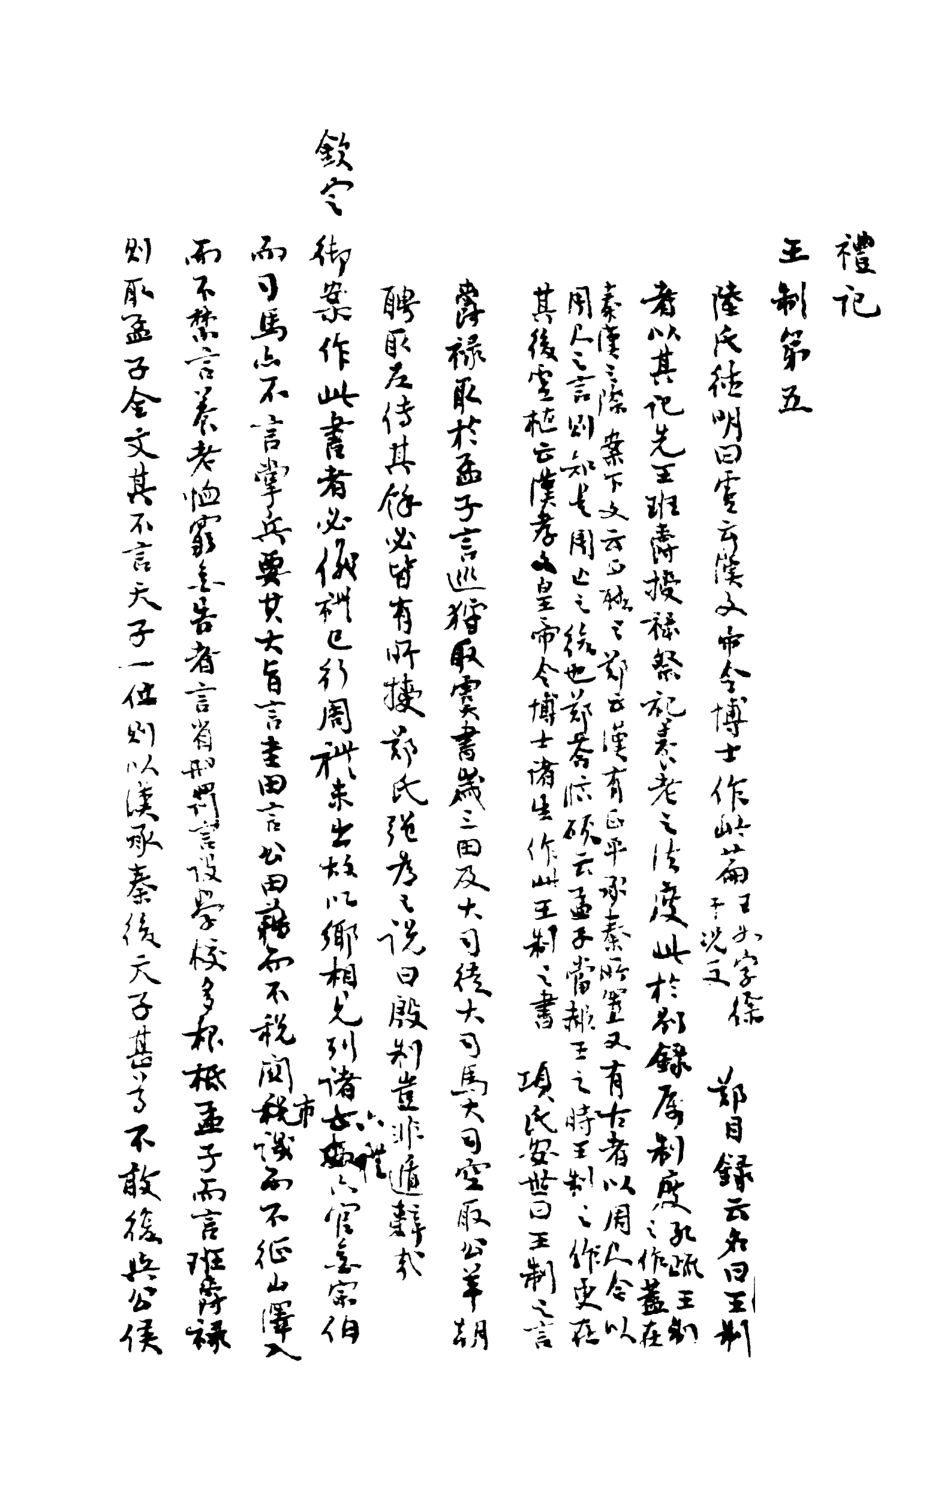 禮記
王制第五
陸氏德明曰盧云漢文帝令博士作此篇王如字徐于況反 鄭目錄云名曰王制
者以其記先王班爵授祿祭祀養老之法度此於別錄屬制度孔疏王制之作蓋在
秦漢之際案下文云正聽之鄭云漢有正平承秦所置又有古者以周尺今以
周尺之言則知是周亡之後也鄭荅臨碩云孟子當赧王之時王制之作更在
其後盧植云漢孝文皇帝令博士諸生作此王制之書 項氏安世曰王制之言
爵祿取於孟子言巡狩取虞書歲三田及大司徒大司馬大司空取公羊朝
聘取左傳其餘必皆有所據鄭氏強為之說曰殷制豈非遁辭哉
欽定
御案作此書者必儀禮已行周禮未出故以鄉相見列諸六禮六官無宗伯
而司馬亦不言掌兵要其大旨言圭田言公田藉而不稅關市稅譏而不征山澤入
而不禁言養老恤窮無告者言省刑罰言設學校多根柢孟子而言班爵祿
則取孟子全文其不言天子一位則以漢承秦後天子甚尊不敢復與公侯